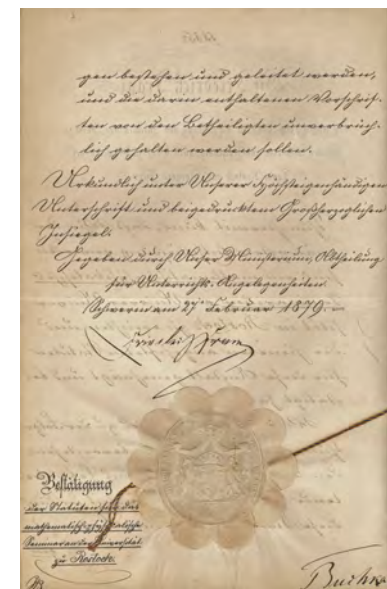 gen bestehen und geleitet werden,
und die darin enthaltenen Vorschrif-
ten von den Betheiligten unverbrüch-
lich gehalten werden sollen.
Urkundlich unter Unserer Höchsteigenhändigen
Unterschrift und beigedrucktem Großherzoglichen
Insiegel.
Gegeben durch Unser Ministerium, Abtheilung
für Unterrichts-Angelegenheiten
Schwerin am 27 Februar 1879.
Friedrich Franz
Bestätigung
der Statuten für das
mathematisch-physikalische
Seminar an der Universität
zu Rostock.
Buchka